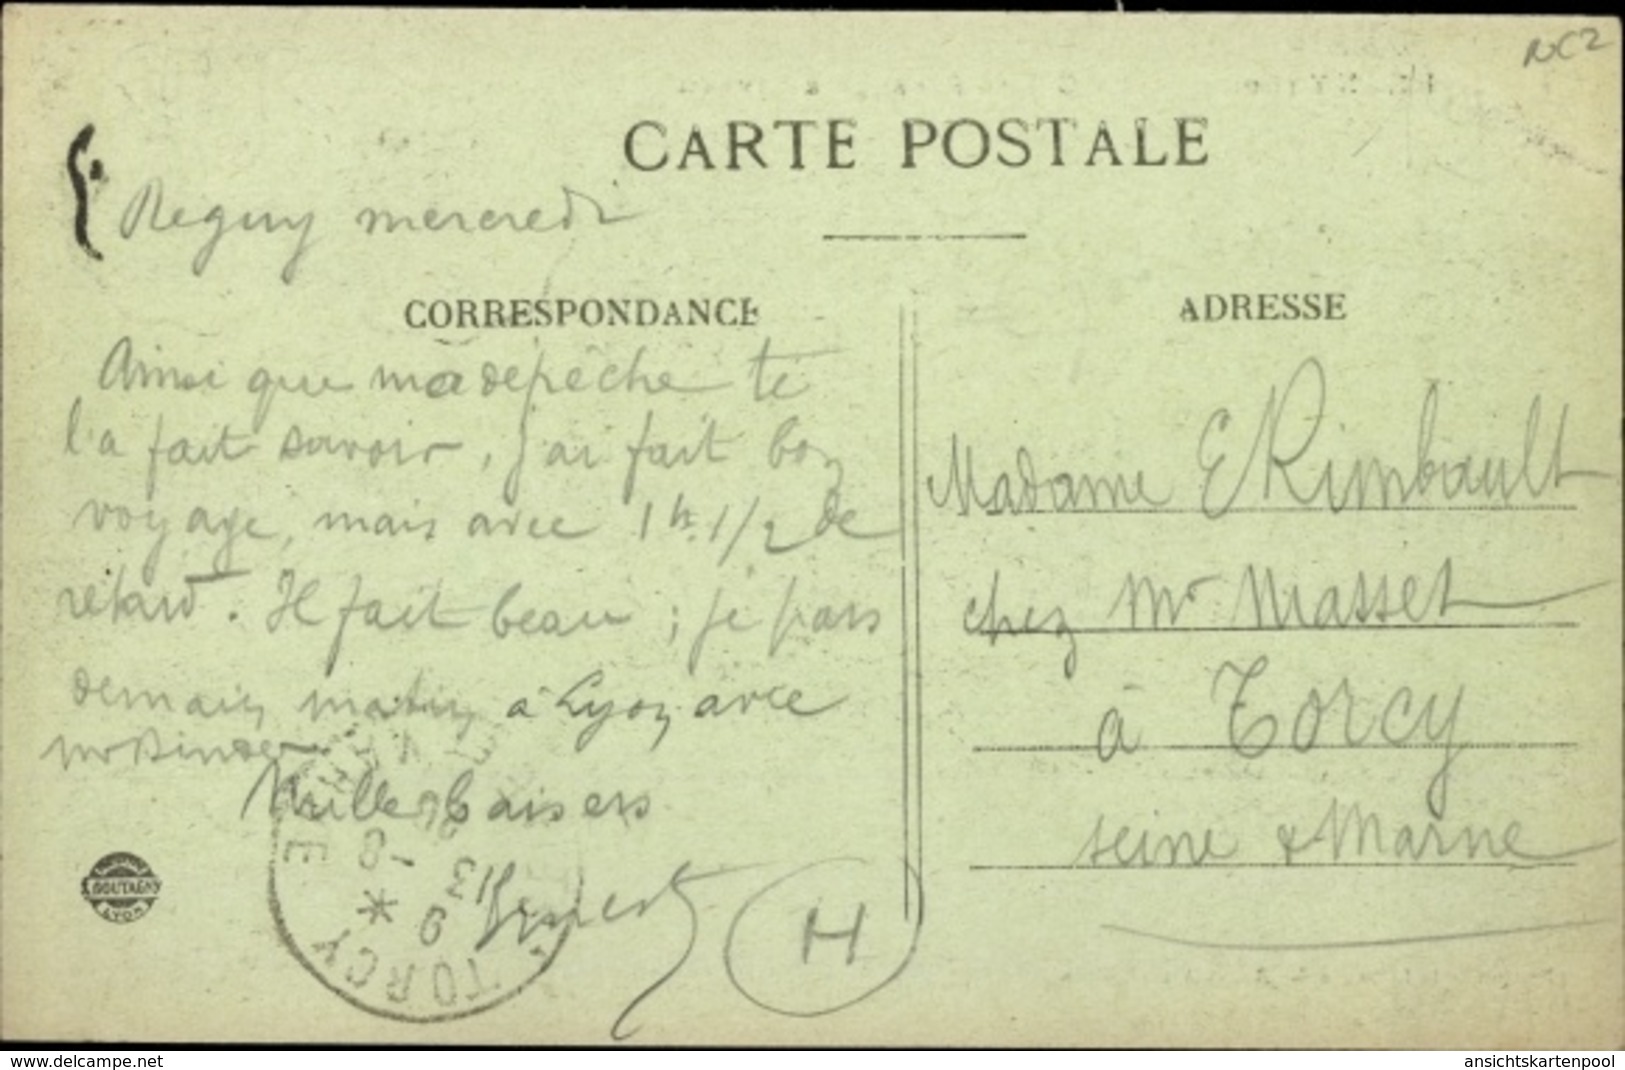 CARTE POSTALE
Regny mercredi
CORRESPONDANCE
Ainsi que ma dépêche te
l'a fait savoir, j'ai fait bon
voyage, mais avec 1h.1/2 de
retard. Il fait beau ; je pars
demain matin à Lyon avec
Mr
Mille baisers
Ernest
ADRESSE
Madame E Rimbault
chez Mr Masset
à Torcy
Seine & Marne
H
TORCY
13
9
GOUTAGNY
LYON
www.delcampe.net
ansichtskartenpool